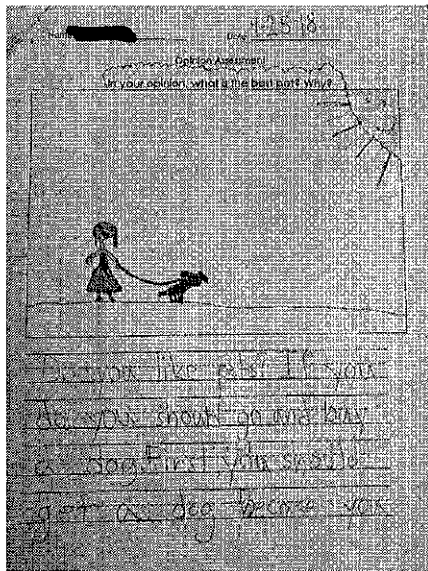 Name Date 4-25-18
Opinion Assessment
In your opinion, what is the best pet? Why?
Do you like pets? If you
do you should go and buy
a dog. First you shoulo
get a dog becaus you